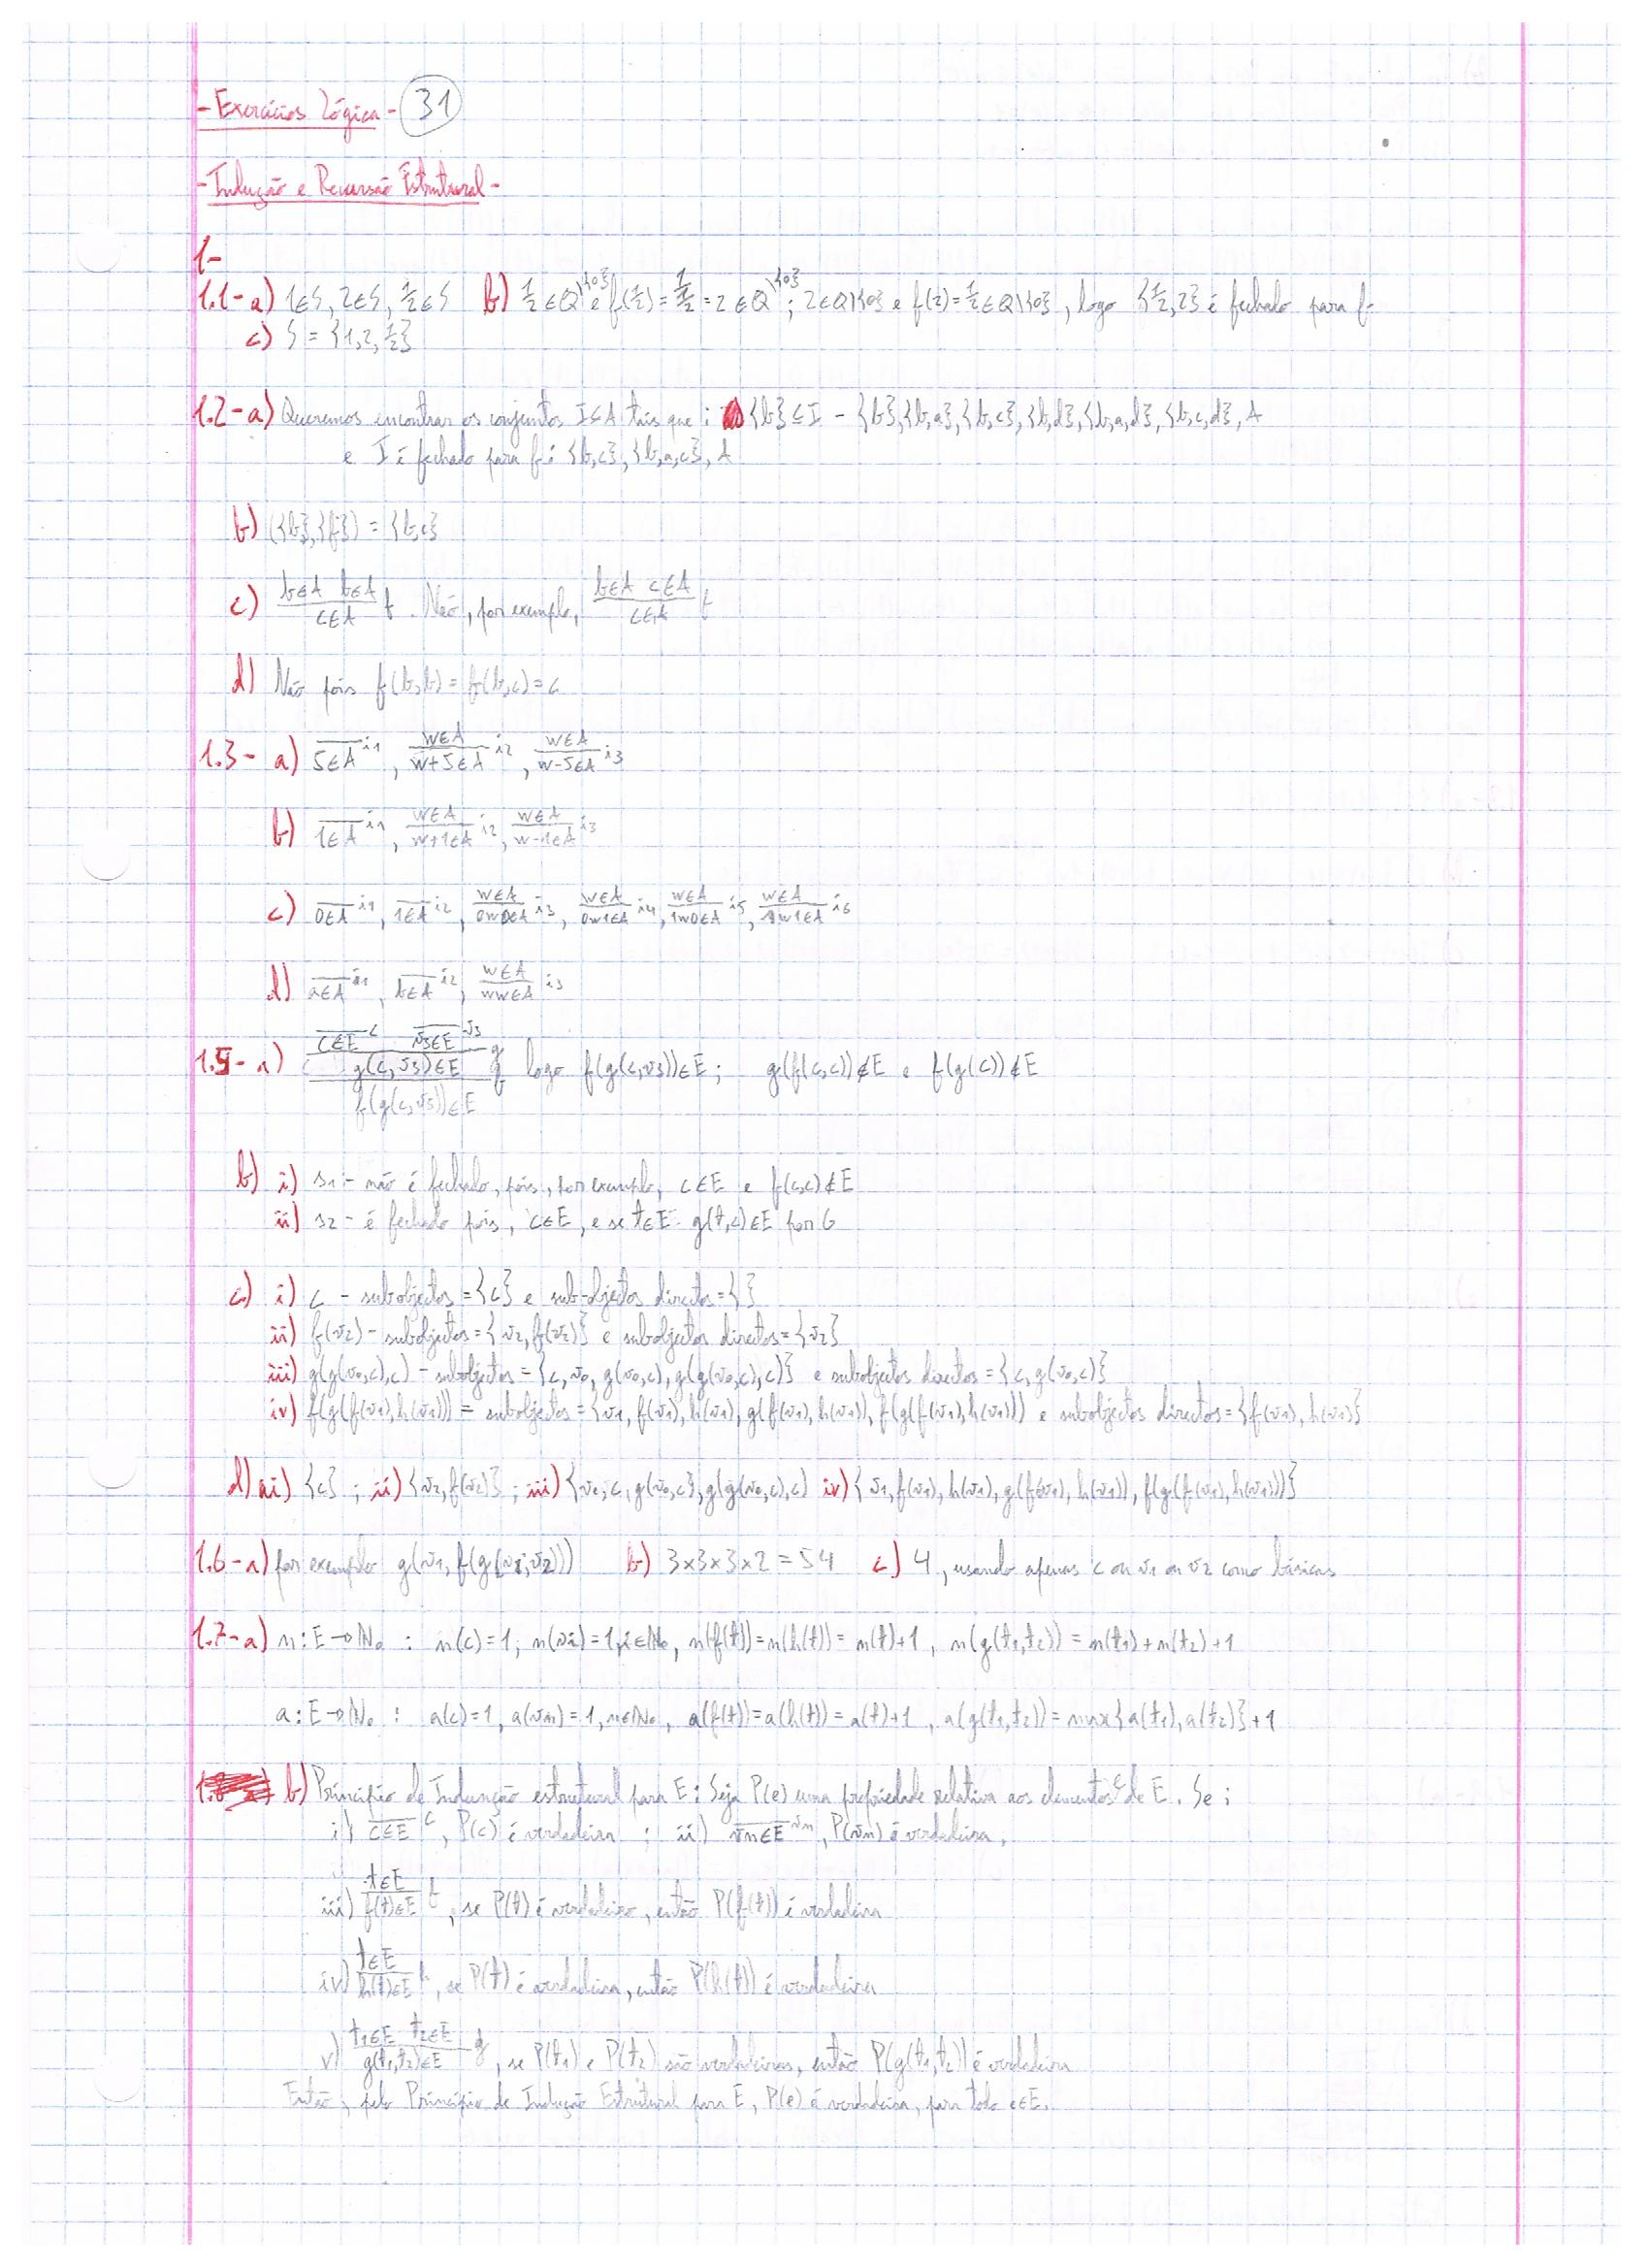 - Exercícios Lógica - 31
- Indução e Recursão Estrutural -
1-
1.1 - a) 1∈S, 2∈S, 1/2∈S b) 1/2 ∈ Q\{0} e f(1/2) = 1/(1/2) = 2 ∈ Q\{0}; 2∈Q\{0} e f(2) = 1/2 ∈ Q\{0}, logo {1/2, 2} é fechado para f.
c) S = {1, 2, 1/2}
1.2 - a) Queremos encontrar os conjuntos I⊆A tais que: {b} ⊆ I - {b}, {b,a}, {b,c}, {b,d}, {b,a,d}, {b,c,d}, A
e I é fechado para f: {b,c}, {b,a,c}, A
b) ({b},{f}) = {b,c}
c) b∈A b∈A / c∈A f. Não, por exemplo, b∈A c∈A / c∈A f
d) Não pois f(b,b) = f(b,c) = c
1.3 - a) 5∈A i1, w∈A / w+5∈A i2, w∈A / w-5∈A i3
b) 1∈A i1, w∈A / w+1∈A i2, w∈A / w-1∈A i3
c) 0∈A i1, 1∈A i2, w∈A / 0w0∈A i3, w∈A / 0w1∈A i4, w∈A / 1w0∈A i5, w∈A / 1w1∈A i6
d) a∈A i1, b∈A i2, w∈A / ww∈A i3
1.5 - a) c∈E c v3∈E v3 / g(c,v3)∈E g / f(g(c,v3))∈E logo f(g(c,v3))∈E; g(f(c,c))∉E e f(g(c))∉E
b) i) s1 - não é fechado, pois, por exemplo, c∈E e f(c,c)∉E
ii) s2 - é fechado pois, c∈E, e se t∈E g(t,c)∈E por G
c) i) c - subobjectos = {c} e sub-objectos directos = { }
ii) f(v2) - subobjectos = {v2, f(v2)} e subobjectos directos = {v2}
iii) g(g(v0,c),c) - subobjectos = {c, v0, g(v0,c), g(g(v0,c),c)} e subobjectos directos = {c, g(v0,c)}
iv) f(g(f(v1),h(v1))) = subobjectos = {v1, f(v1), h(v1), g(f(v1),h(v1)), f(g(f(v1),h(v1))) e subobjectos directos = {f(v1), h(v1)}
d) i) {c} ; ii) {v2, f(v2)} ; iii) {v0, c, g(v0,c}, g(g(v0,c),c) iv) {v1, f(v1), h(v1), g(f(v1),h(v1)), f(g(f(v1),h(v1)))}
1.6 - a) por exemplo g(v1, f(g(v1,v2))) b) 3×3×3×2 = 54 c) 4, usando apenas c ou v1 ou v2 como básicas
1.7 - a) n: E→N0 : n(c)=1, n(vi)=1, i∈N0, n(f(t)) = n(h(t)) = n(t)+1, n(g(t1,t2)) = n(t1)+n(t2)+1
a: E→N0 : a(c)=1, a(vn)=1, n∈N0, a(f(t)) = a(h(t)) = a(t)+1, a(g(t1,t2)) = max{a(t1),a(t2)}+1
b) Princípio de Indunção estrutural para E: Seja P(e) uma propriedade relativa aos elementos e de E. Se:
i) c∈E c, P(c) é verdadeira ; ii) vn∈E vn, P(vn) é verdadeira,
iii) t∈E / f(t)∈E f, se P(t) é verdadeiro, então P(f(t)) é verdadeira
iv) t∈E / h(t)∈E h, se P(t) é verdadeira, então P(h(t)) é verdadeira
v) t1∈E t2∈E / g(t1,t2)∈E g, se P(t1) e P(t2) são verdadeiras, então P(g(t1,t2)) é verdadeira
Então, pelo Princípio de Indução Estrutural para E, P(e) é verdadeira, para todo e∈E.